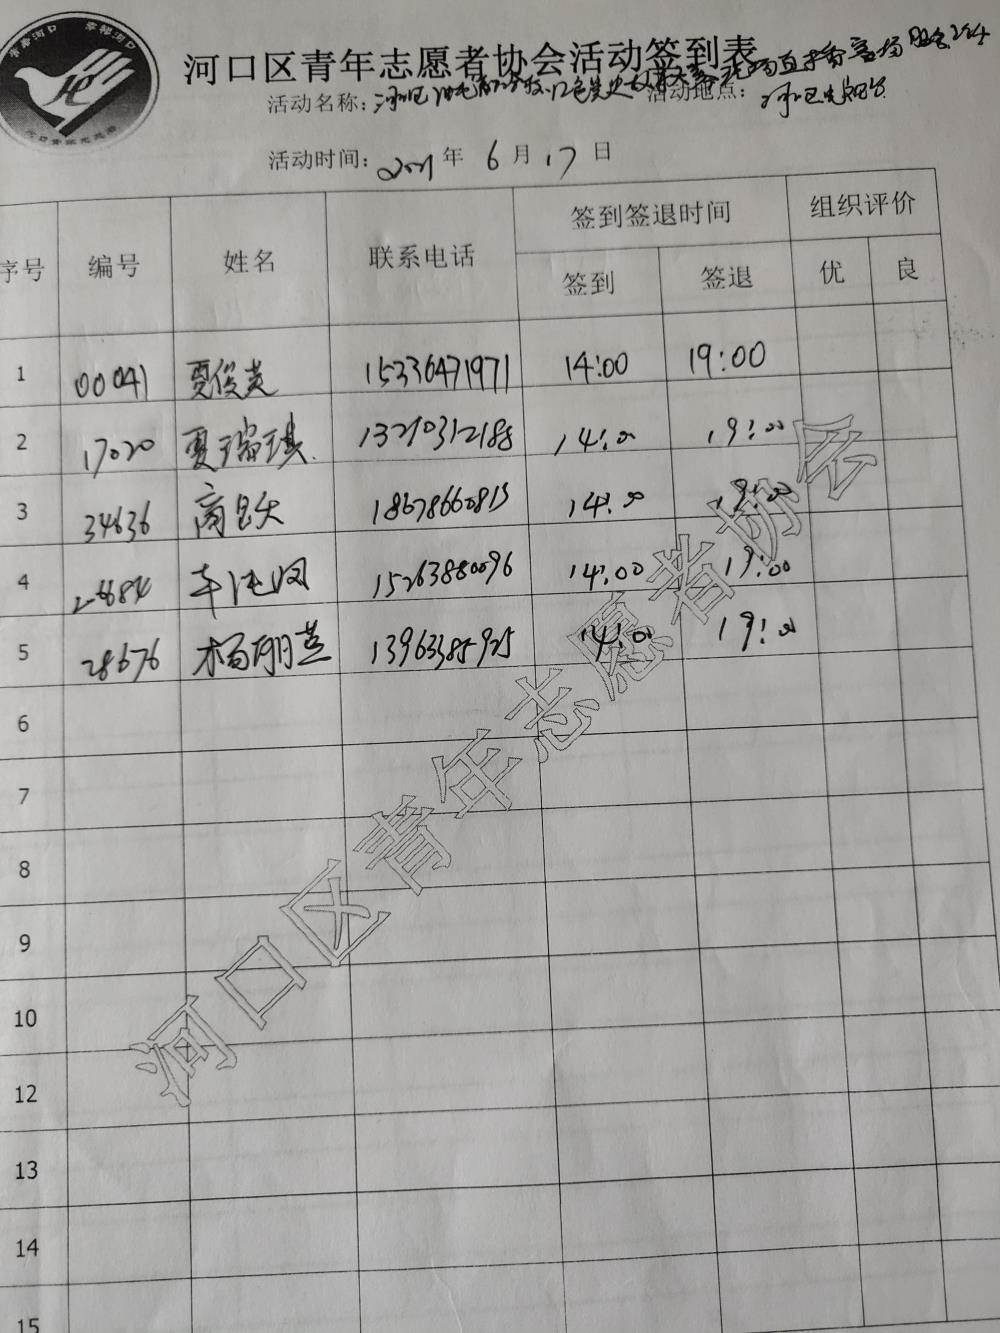 青春河口 幸福河口
河口区青年志愿者协会活动签到表
活动名称: 活动地点:
活动时间: 2021年 6月17日
序号 编号 姓名 联系电话 签到签退时间 组织评价
签到 签退 优 良
1 00041 贾俊英 15336471971 14:00 19:00
2 17020 夏瑞琪 13210312188 14:00 19:00
3 34636 商 18678660813 14:00 19:00
4 车 15263880096 14:00 19:00
5 28676 杨珊 13963385925 14:00 19:00
6
7
8
9
10
12
13
14
15
河口区青年志愿者协会